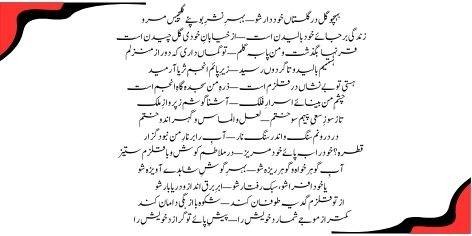 ہمچو گل در گلستاں خود دار شو — بہر نشرِ بو پئے گلچیں مرو
زندگی بر جائے خود بالیدن است — از خیابانِ خودی گل چیدن است
قرنہا بگذشت و من پا بہ گلم — تو گماں داری کہ دور از منزلم
ہستیم بالید و تا گردوں رسید — زیرِ پایم انجم ثریا آرمید
ہستیِ تو بے نشاں در قلزم است — ذرہ من سجدہ گاہِ انجم است
چشمِ من بینائے اسرارِ فلک — آشنا گوشم ز پروازِ ملک
تا ز سوزِ سعیِ پیہم سوختم — لعل و الماس و گہر اندوختم
در درونم سنگ و اندر سنگ نار — آب را بر نارِ من نبود گزار
قطرہ؟ خود را بہ پائے خود مریز — در تلاطم کوش و با قلزم ستیز
آب گوہر خواہ و گوہر ریزہ شو — بہرِ گوشِ شاہدے آویزہ شو
یا خود افزا شو، سبک رفتار شو — ابرِ برق انداز و دریا بار شو
از تو قلزم گدیۂ طوفان کند — شکوہ ہا از تنگیِ داماں کند
کمتر از موجے شمارد خویش را — پیشِ پائے تو گزارد خویش را